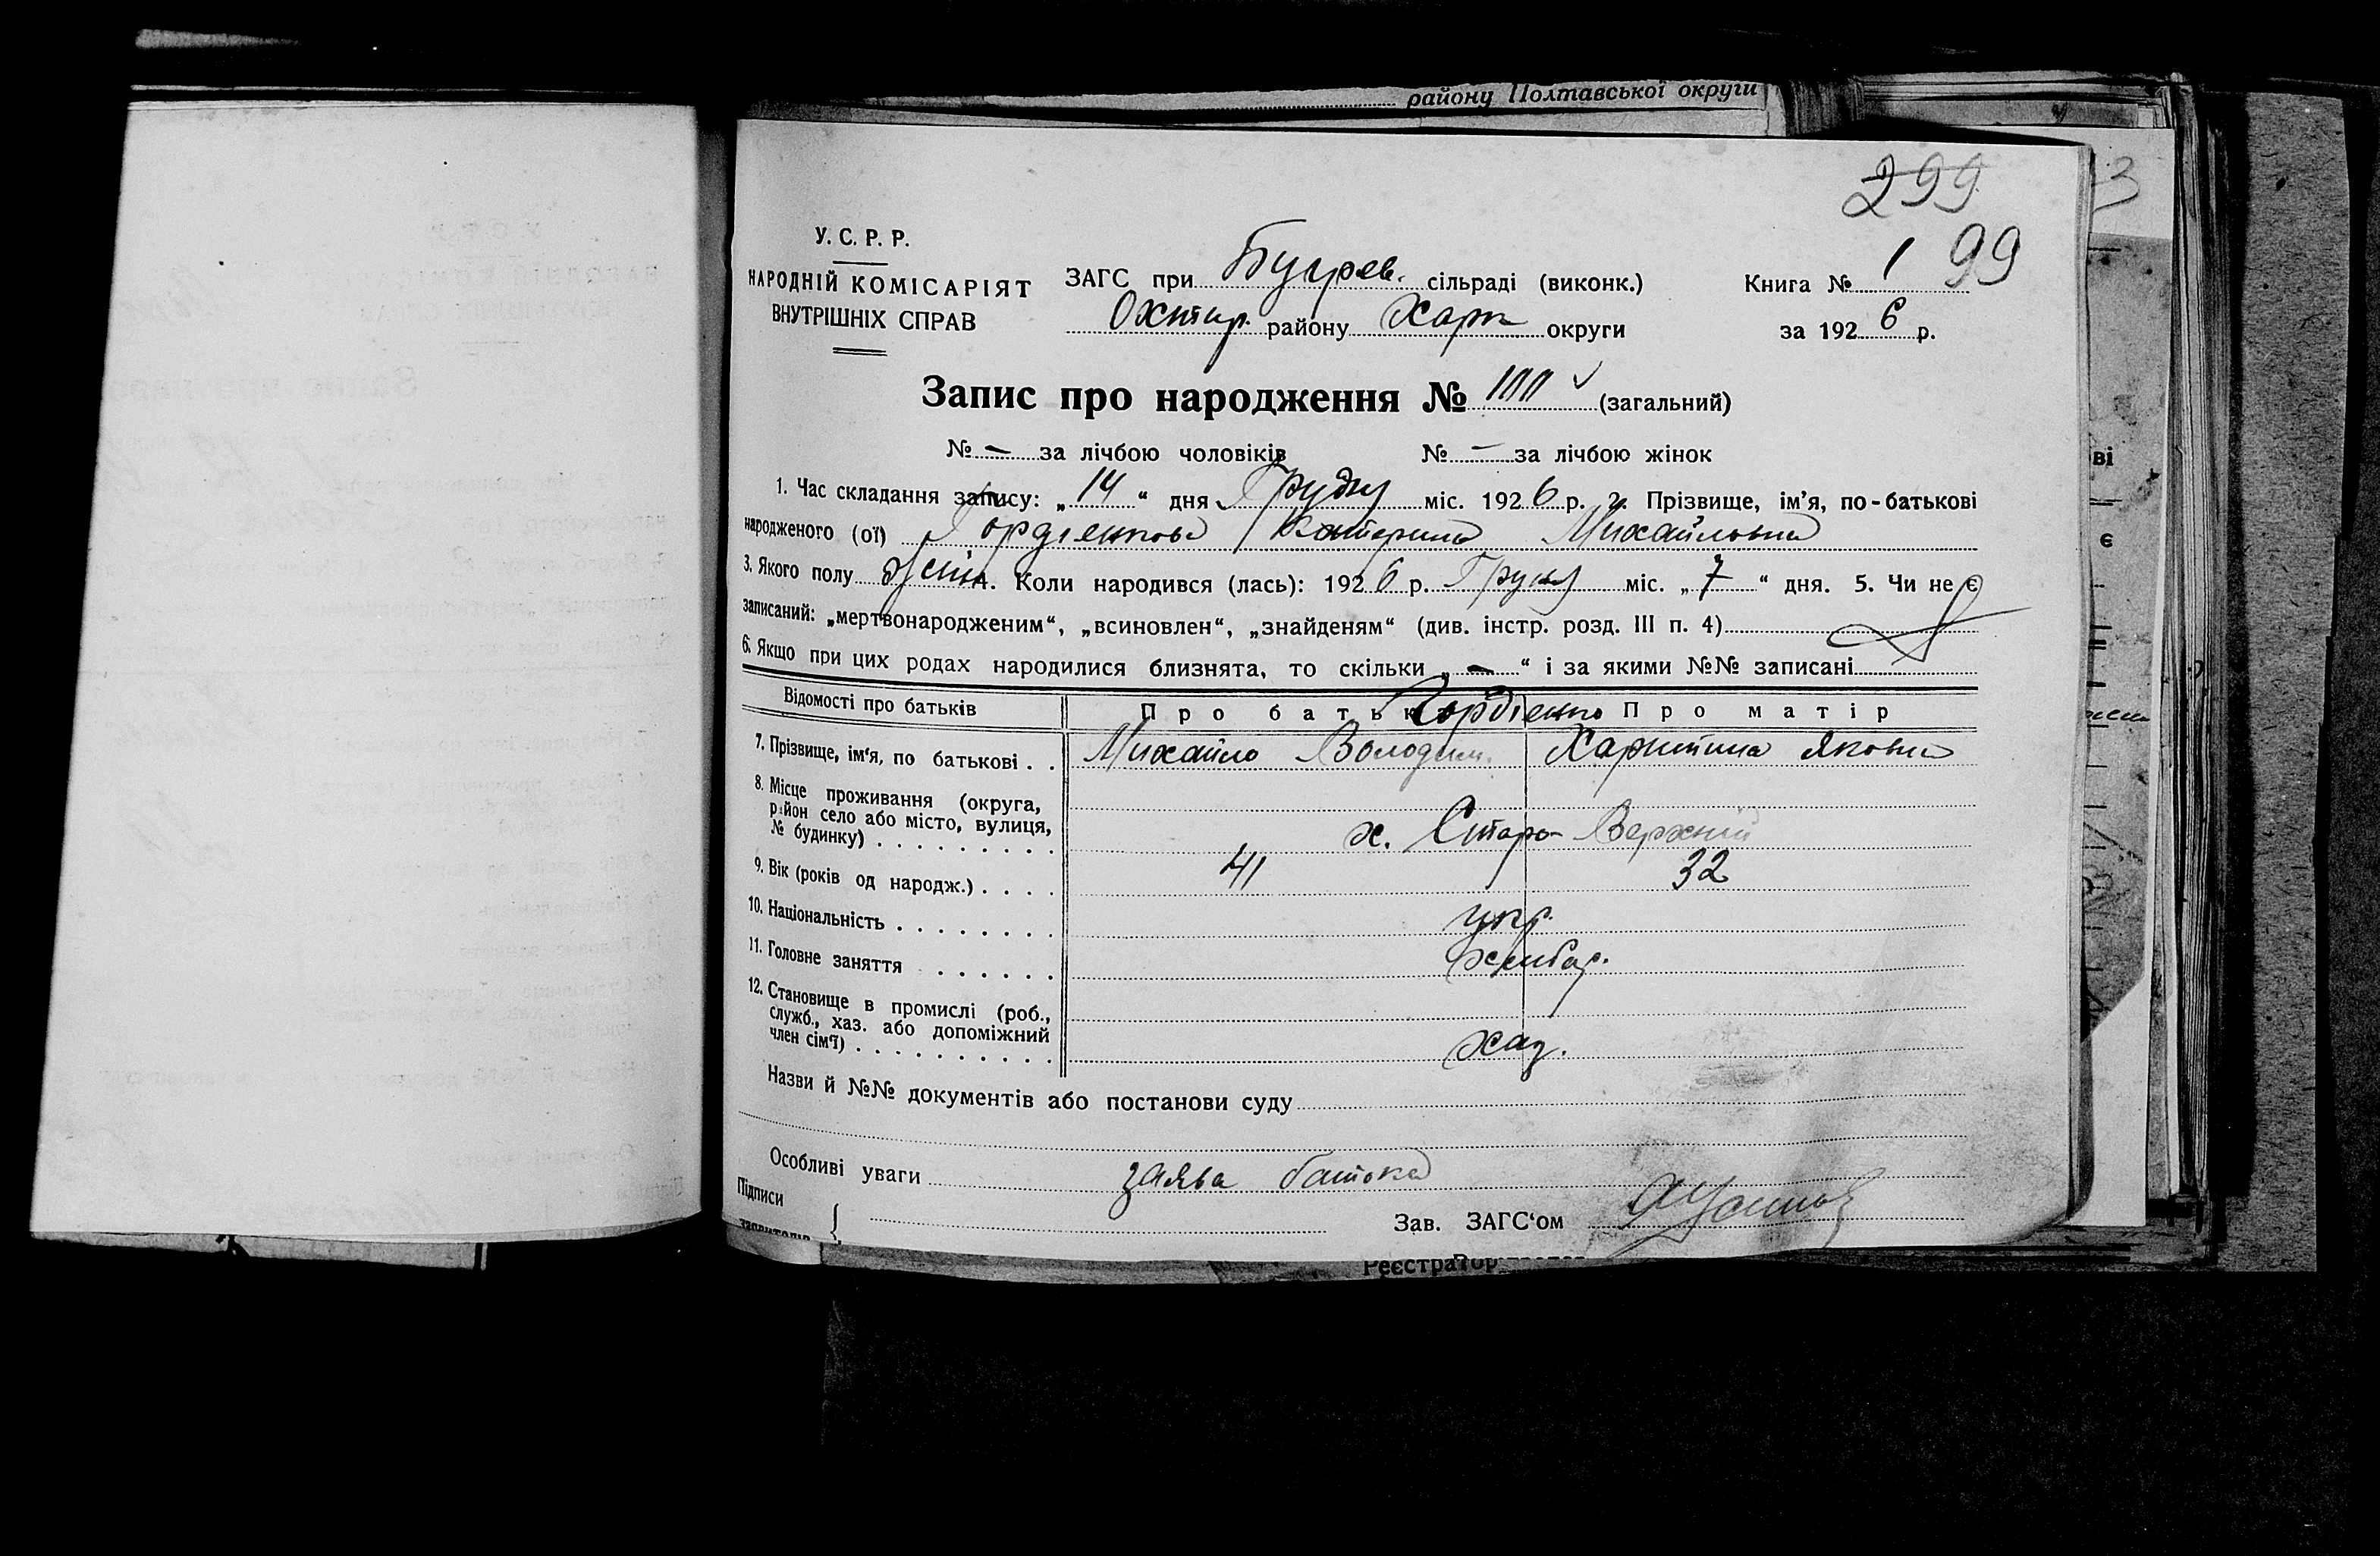 району Полтавської округи
299
3
У. С. Р. Р.
НАРОДНІЙ КОМІСАРІЯТ
ВНУТРІШНІХ СПРАВ
ЗАГС при Бугрев. сільраді (виконк.)
Охтир. району Харк округи
Книга № 1 99
за 1926 р.
Запис про народження № (загальний)
№ – за лічбою чоловіків № – за лічбою жінок
1. Час складання запису: „14“ дня Грудня міс. 1926 р. 2. Прізвище, ім’я, по-батькові
народженого (ої) Гордієнкова Катерина Михайловна
3. Якого полу жін 4. Коли народився (лась): 1926 р. Грудня міс. „7“ дня. 5. Чи не є
записаний: „мертвонародженим“, „всиновлен“, „знайденям“ (див. інстр. розд. III п. 4)
6. Якщо при цих родах народилися близнята, то скільки „–“ і за якими №№ записані
Відомості про батьків Про батька Гордієнко Про матір
7. Прізвище, ім‘я, по батькові . . Михайло Володим. Харитина Яковна
8. Місце проживання (округа,
район село або місто, вулиця,
№ будинку) . . . . . . . . . х. Старо-Верхній
9. Вік (років од народж.) . . . . 41 32
10. Національність . . . . . . . . укр.
11. Головне заняття . . . . . . хлібор.
12. Становище в промислі (роб.,
служб., хаз. або допоміжний
член сім‘ї) . . . . . . . . . . хаз.
Назви й №№ документів або постанови суду
Особливі уваги заява батька
Підписи
Зав. ЗАГС‘ом
Реєстратор
ві
є